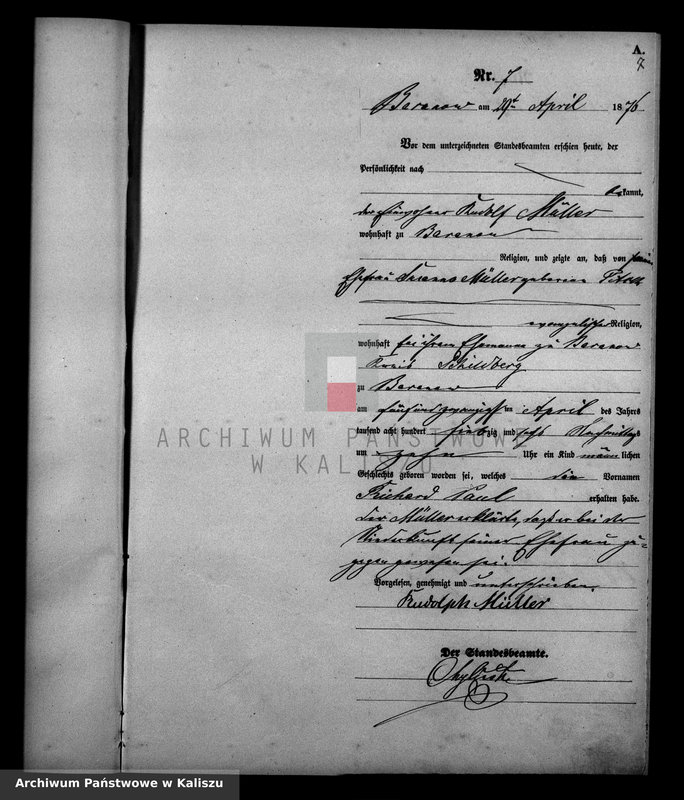 A.
7
Nr. 7
Baranow am 29t April 1876
Vor dem unterzeichneten Standesbeamten erschien heute, der
Persönlichkeit nach
bekannt,
der Einwohner Rudolf Müller
wohnhaft zu Baranow
Religion, und zeigte an, daß von seiner
Ehefrau Müller geborene
evangelischer Religion,
wohnhaft bei ihrem Ehemanne zu Baranow
Kreis Schildberg
zu Baranow
am fünfundzwanzigsten April des Jahres
tausend acht hundert siebzig und sechs Nachmittags
um zehn Uhr ein Kind männlichen
Geschlechts geboren worden sei, welches die Vornamen
Richard Paul erhalten habe.
Der Müller erklärte, daß er bei der
Niederkunft seiner Ehefrau zu-
gegen gewesen sei.
Vorgelesen, genehmigt und unterschrieben.
Rudolph Müller
Der Standesbeamte.
ARCHIWUM PAŃSTWOWE
W KALISZU
Archiwum Państwowe w Kaliszu